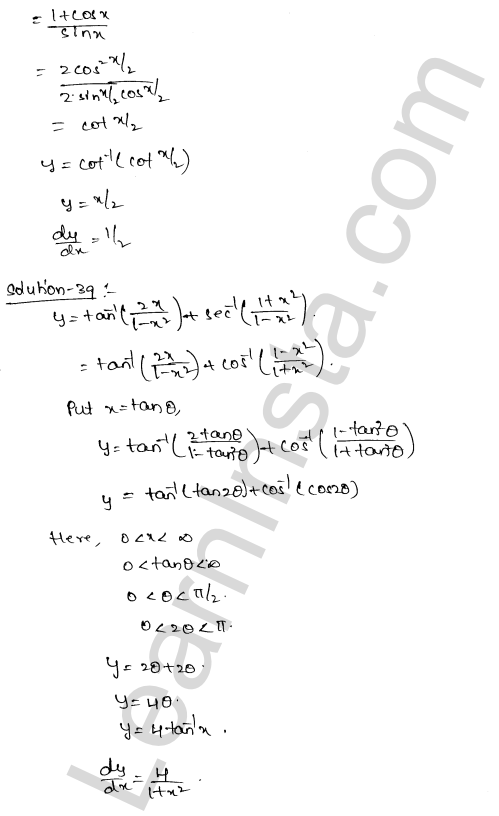 = 1+cosx / sinx
= 2cos² x/2 / 2·sin x/2 cos x/2
= cot x/2
y = cot⁻¹(cot x/2)
y = x/2
dy/dx = 1/2
Solution-39 :-
y = tan⁻¹(2x / 1-x²) + sec⁻¹(1+x² / 1-x²).
= tan⁻¹(2x / 1-x²) + cos⁻¹(1-x² / 1+x²).
Put x = tanθ,
y = tan⁻¹(2tanθ / 1-tan²θ) + cos⁻¹(1-tan²θ / 1+tan²θ)
y = tan⁻¹(tan2θ) + cos⁻¹(cos2θ)
Here, 0 < x < ∞
0 < tanθ < ∞
0 < θ < π/2.
0 < 2θ < π.
y = 2θ+2θ.
y = 4θ.
y = 4tan⁻¹x.
dy/dx = 4 / 1+x².
LearnInsta.com